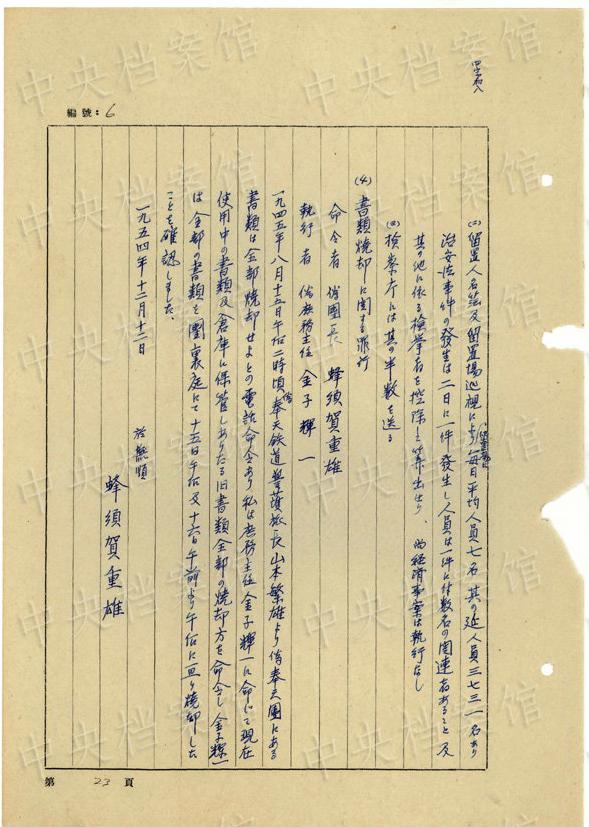 四字加入
編號：6
(二)留置人名簿及留置場巡視により毎日平均人員七名其の延人員三七三一名あり
治安法事件の發生は二日に一件發生し人員は一件に付数名の関連者あること及
其の他に依る檢挙者を控除し算出せり、尚経済事案は執行なし
(ホ)検察庁には其の半数を送る
(4)書類焼却に関する罪行
命令者 偽團長 蜂須賀重雄
執行者 偽庶務主任 金子輝一
一九四五年八月十五日午后二時頃奉天鉄道警護旅長山本繁雄より偽奉天團にある
書類は全部焼却せよとの電話命令あり私は庶務主任金子輝一に命じて現在
使用中の書類及倉庫に保管しありたる旧書類全部の焼却方を命令し金子輝一
は全部の書類を團裏庭にて十五日午后及十六日午前より午后に亘り焼却した
ことを確認しました、
一九五四年十二月十二日
於撫順
蜂須賀重雄
第 23 頁
中央档案馆